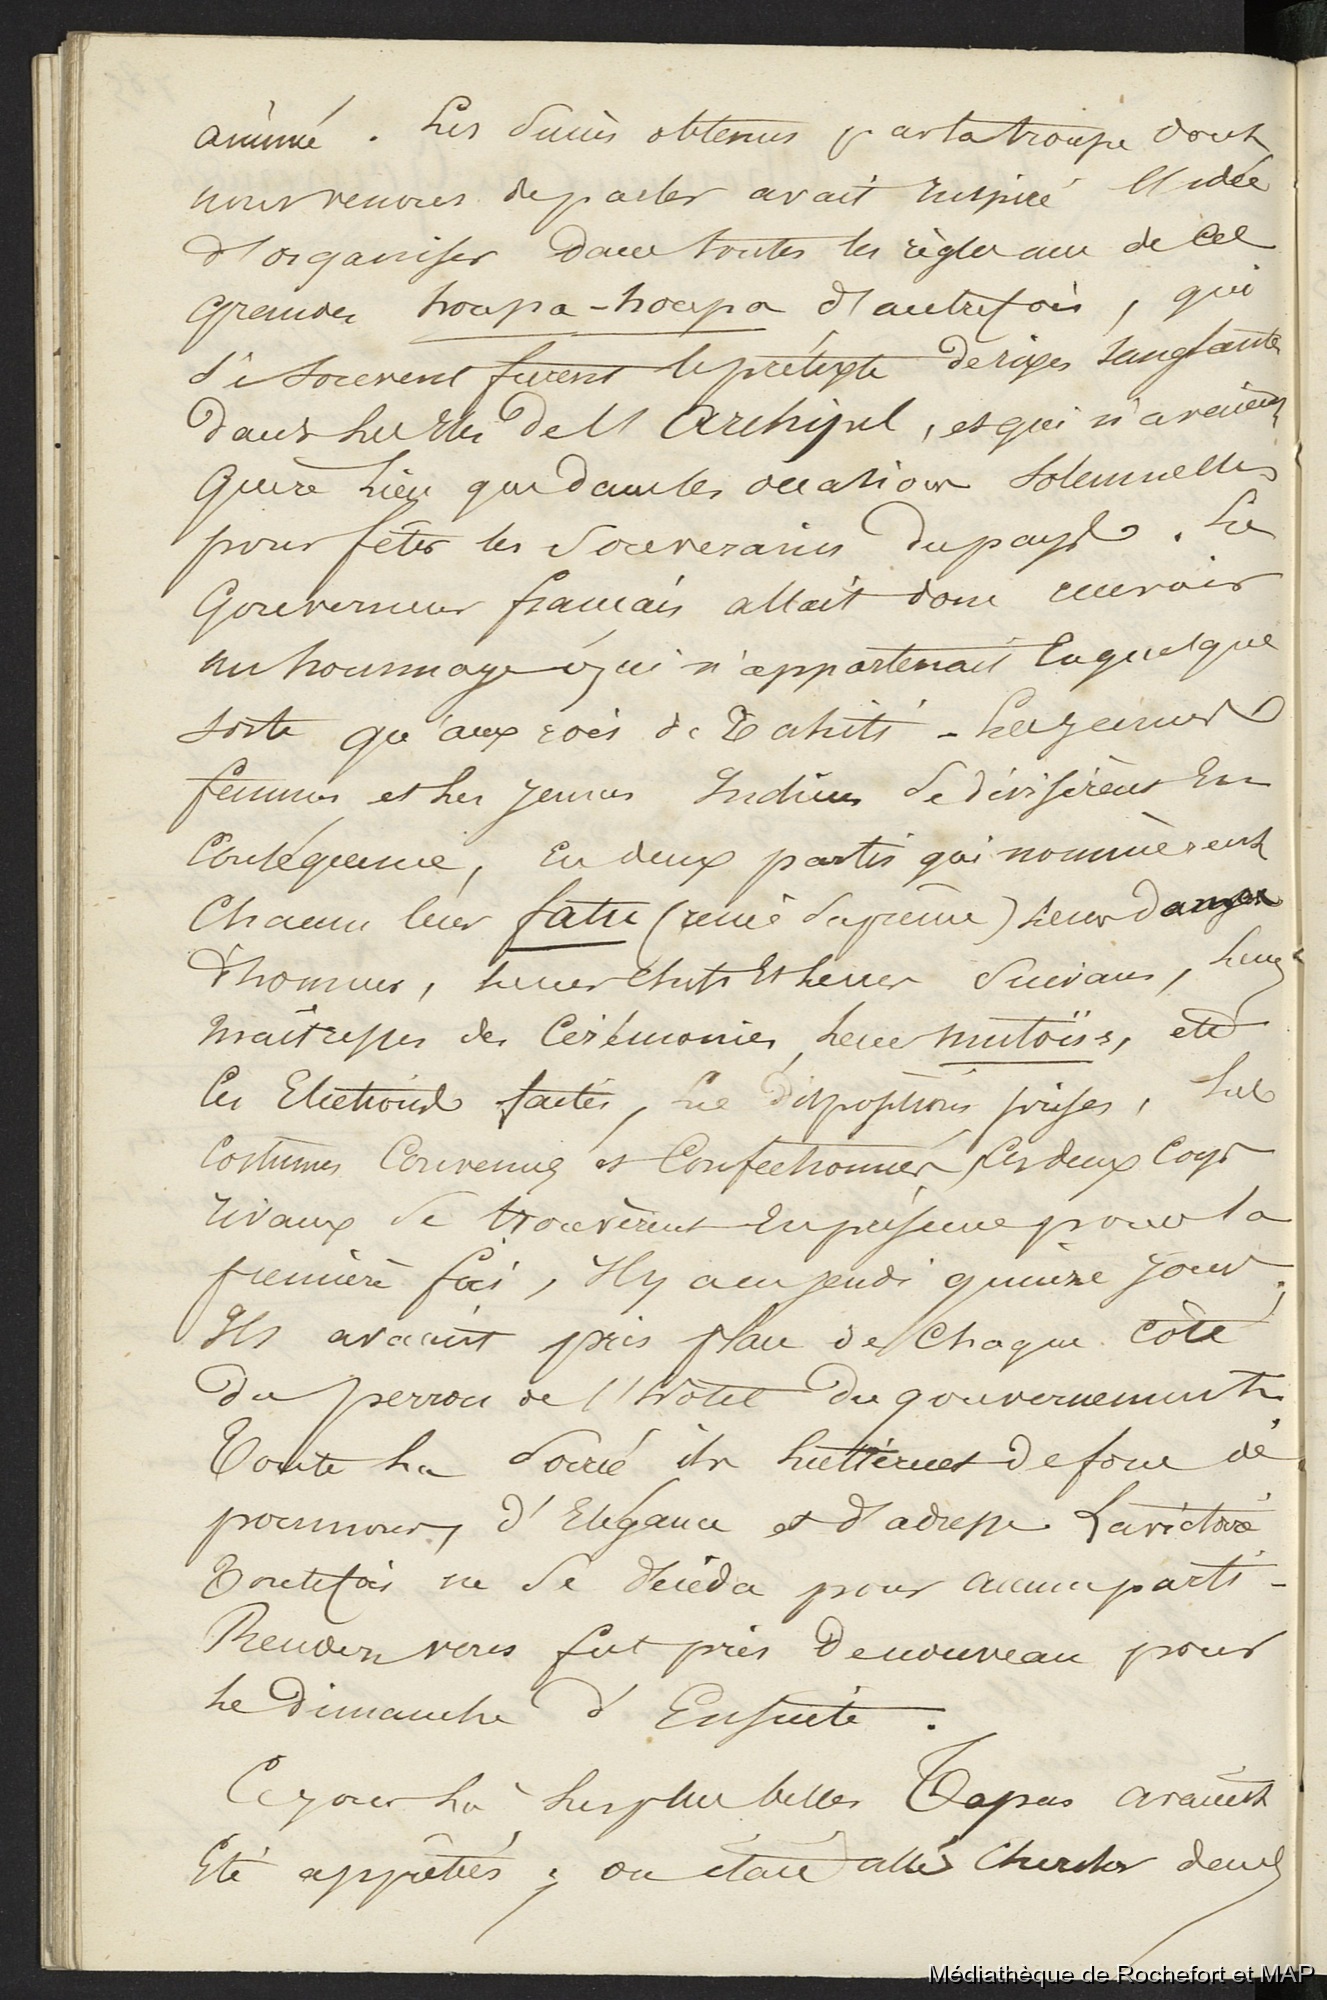 animé. Les succès obtenus par la troupe dont
nous venons de parler avait inspiré l'idée
d'organiser dans toutes les règles un de ces
grandes houpa-houpa d'autrefois, qui
si souvent furent le prétexte de rixes sanglantes
dans les Iles de l'Archipel, et qui n'avaient
guère lieu que dans les occasions solennelles
pour fêter les souverains du pays. Le
Gouverneur français allait donc recevoir
un hommage qui n'appartenait en quelque
sorte qu'aux rois de Tahiti - Les jeunes
femmes et les jeunes Indiens se divisèrent en
conséquence, en deux partis qui nommèrent
chacun leur fatu (suprême) leurs
d'hommes, leurs chefs et leurs suivans, leurs
maîtresses des cérémonies, leurs mutoïs, etc
Les Elections faites, les dispositions prises, les
costumes convenus et confectionnés, les deux corps
rivaux se trouvèrent en présence pour la
première fois, il y a eu jeudi quinze jours.
Ils avaient pris place de chaque côté
du perron de l'hôtel du gouvernement.
Toute la soirée ils luttèrent de force de
poumons, d'Elégance et d'adresse. La victoire
toutefois ne se décida pour aucun parti -
Rendez vous fut pris de nouveau pour
le dimanche d'Ensuite.
Ce jour là les plus belles Tapas avaient
Eté apprêtées ; on était allé chercher dans
Médiathèque de Rochefort et MAP